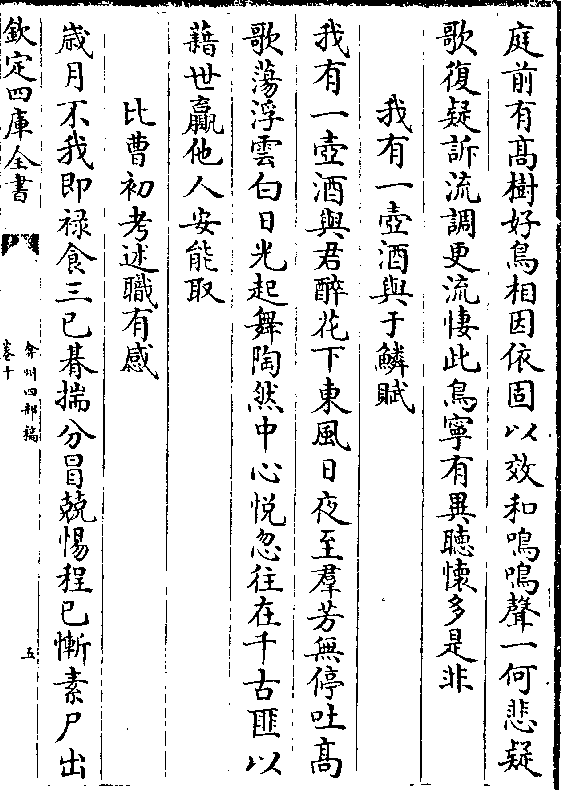 庭前有髙樹好鳥相因依固以效和鳴鳴聲一何悲疑
歌復疑訴流調更流悽此鳥寧有異聽懷多是非
我有一壺酒與于鱗賦
我有一壺酒與君醉花下東風日夜至羣芳無停吐髙
歌蕩浮雲白日光起舞陶然中心悦忽往在千古匪以
藉世贏他人安能取
比曹初考述職有感
嵗月不我即禄食三已朞揣分冒兢惕程已慚素尸出
欽定四庫全書
弇州四部稿
卷十
五